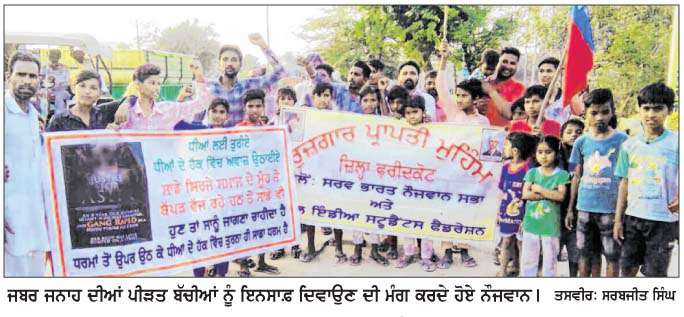 ਧੀਆਂ ਲਈ ਤੁਰੀਏ
ਧੀਆਂ ਦੇ ਹੱਕ ਵਿੱਚ ਅਵਾਜ਼ ਉਠਾਈਏ
ਸਾਡੇ ਸਿਰਜੇ ਸਮਾਜ ਦੇ ਮੂੰਹ ਤੇ
ਥੱਪੜ ਵੱਜ ਰਹੇ ਹਣ ਤੋਂ ਸਾਡੇ ਵੀ
ਹੁਣ ਤਾਂ ਸਾਨੂੰ ਜਾਗਣਾ ਚਾਹੀਦਾ ਹੈ
ਧਰਮਾਂ ਤੋਂ ਉਪਰ ਉਠ ਕੇ ਧੀਆਂ ਦੇ ਹੱਕ ਵਿੱਚ ਤੁਰਨਾ ਹੀ ਸਾਡਾ ਧਰਮ ਹੈ
GANG RAPED
ਰੁਜਗਾਰ ਪ੍ਰਾਪਤੀ ਮੁਹਿੰਮ
ਜ਼ਿਲ੍ਹਾ ਫਰੀਦਕੋਟ
ਵੱਲੋਂ: ਸਰਵ ਭਾਰਤ ਨੌਜਵਾਨ ਸਭਾ
ਅਤੇ
ਇੰਡੀਆ ਸਟੂਡੈਂਟਸ ਫੈਡਰੇਸ਼ਨ
ਜਬਰ ਜਨਾਹ ਦੀਆਂ ਪੀੜਤ ਬੱਚੀਆਂ ਨੂੰ ਇਨਸਾਫ਼ ਦਿਵਾਉਣ ਦੀ ਮੰਗ ਕਰਦੇ ਹੋਏ ਨੌਜਵਾਨ। ਤਸਵੀਰ: ਸਰਬਜੀਤ ਸਿੰਘ